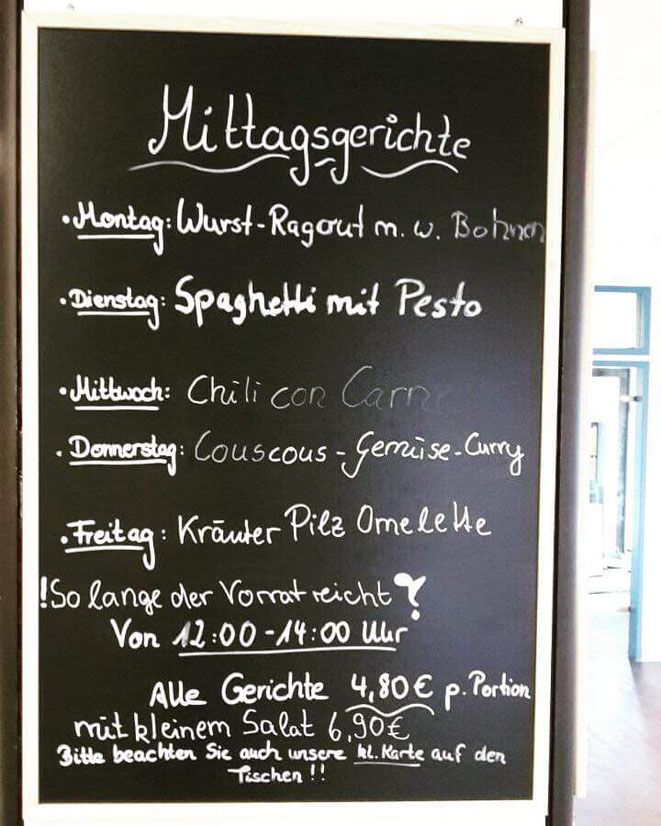 Mittagsgerichte
• Montag: Wurst-Ragout m. w. Bohnen
• Dienstag: Spaghetti mit Pesto
• Mittwoch: Chili con Carne
• Donnerstag: Couscous-Gemüse-Curry
• Freitag: Kräuter Pilz Omelette
! So lange der Vorrat reicht !
Von 12:00-14:00 Uhr
Alle Gerichte 4,80€ p. Portion
mit kleinem Salat 6,90€
Bitte beachten Sie auch unsere kl. Karte auf den
Tischen !!